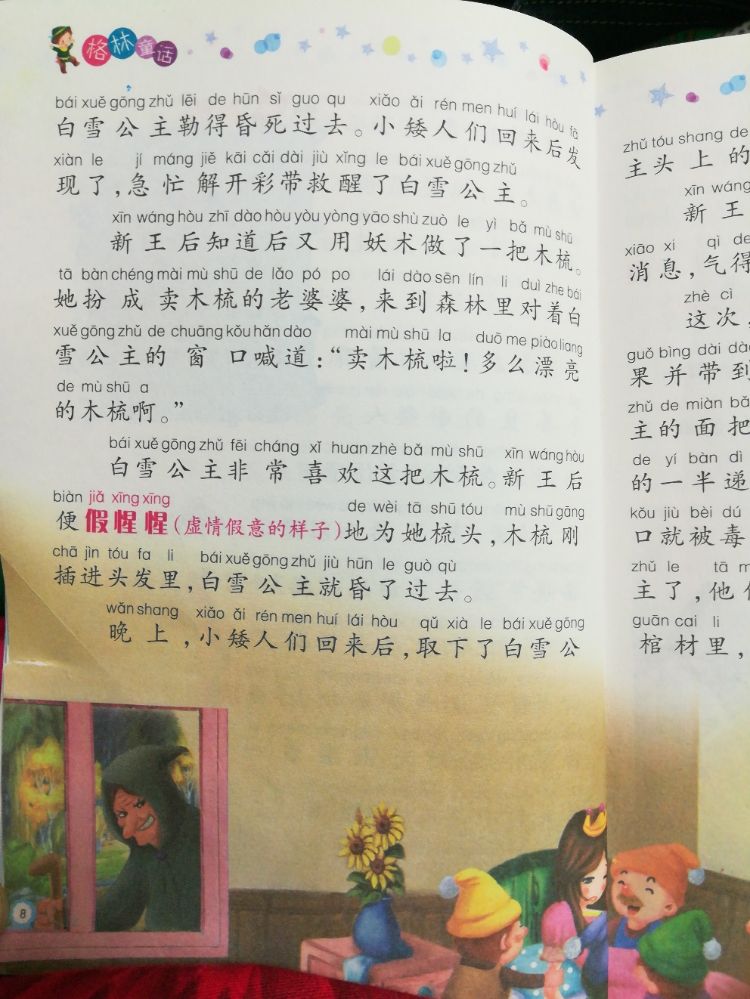 格林童话
bái xuě gōng zhǔ lēi de hūn sǐ guo qu xiǎo ǎi rén men huí lái hòu fā
白雪公主勒得昏死过去。小矮人们回来后发
xiàn le jí máng jiě kāi cǎi dài jiù xǐng le bái xuě gōng zhǔ
现了，急忙解开彩带救醒了白雪公主。
xīn wáng hòu zhī dào hòu yòu yòng yāo shù zuò le yì bǎ mù shū
新王后知道后又用妖术做了一把木梳。
tā bàn chéng mài mù shū de lǎo pó po lái dào sēn lín li duì zhe bái
她扮成卖木梳的老婆婆，来到森林里对着白
xuě gōng zhǔ de chuāng kǒu hǎn dào mài mù shū la duō me piào liang
雪公主的窗口喊道：“卖木梳啦！多么漂亮
de mù shū a
的木梳啊。”
bái xuě gōng zhǔ fēi cháng xǐ huan zhè bǎ mù shū xīn wáng hòu
白雪公主非常喜欢这把木梳。新王后
biàn jiǎ xīng xīng de wèi tā shū tóu mù shū gāng
便假惺惺（虚情假意的样子）地为她梳头，木梳刚
chā jìn tóu fa li bái xuě gōng zhǔ jiù hūn le guò qù
插进头发里，白雪公主就昏了过去。
wǎn shang xiǎo ǎi rén men huí lái hòu qǔ xià le bái xuě gōng
晚上，小矮人们回来后，取下了白雪公
8
zhǔ tóu shang de
主头上的
xīn wáng
新王
xiāo xi qì de
消息，气得
zhè cì
这次，
guǒ bìng dài dào
果并带到
zhǔ de miàn bǎ
主的面把
de yí bàn dì
的一半递
kǒu jiù bèi dú
口就被毒
zhǔ le tā m
主了，他们
guān cai li
棺材里，